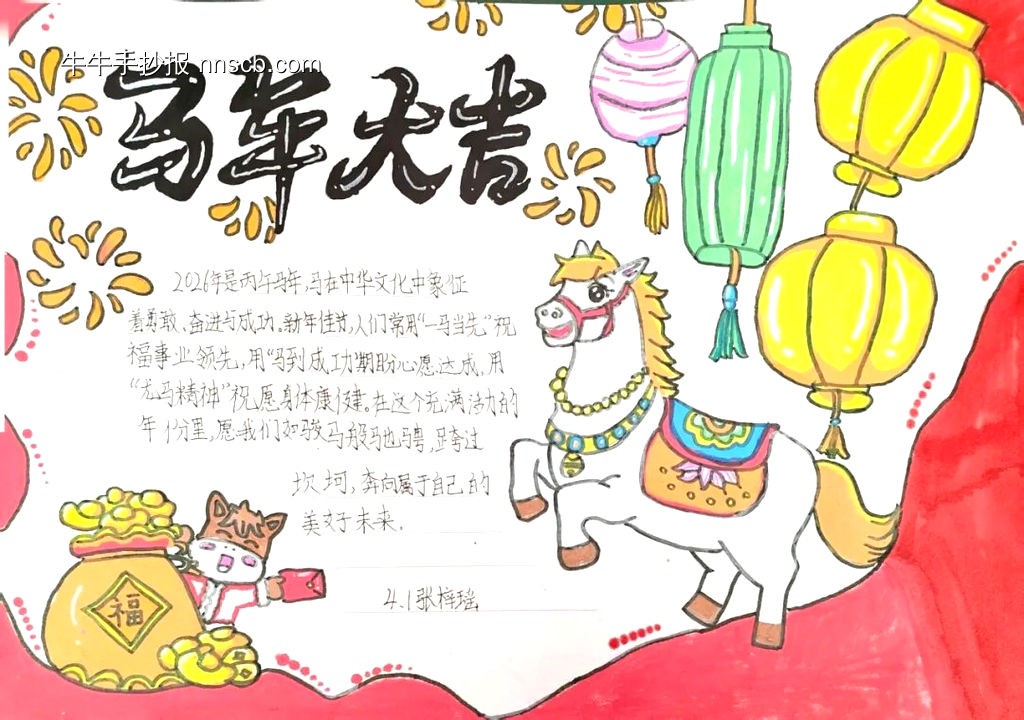 牛牛手抄报 nnscb.com
马年大吉
2026年是丙午马年,马在中华文化中象征
着勇敢、奋进与成功。新年佳节,人们常用“一马当先”祝
福事业领先,用“马到成功”期盼心愿达成,用
“龙马精神”祝愿身体康健。在这个充满活力的
年份里,愿我们如骏马般驰骋,跨过
坎坷,奔向属于自己的
美好未来.
4.1张梓瑶
福